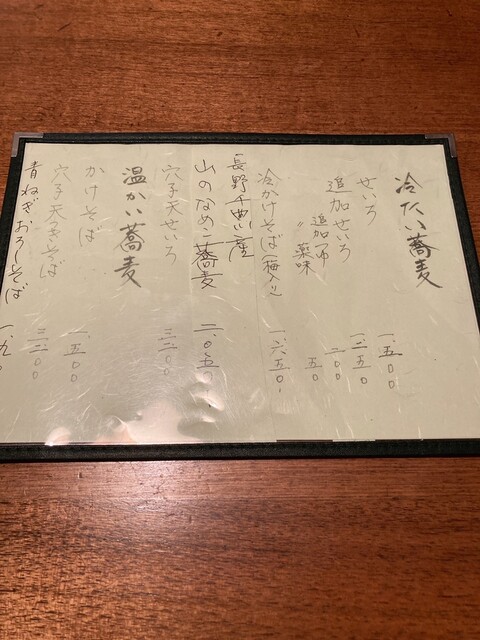 冷たい蕎麦
せいろ 一、五〇〇
追加せいろ 一、二五〇
追加つゆ 二〇〇
〃 薬味 五〇
冷かけそば(梅入り) 一、六五〇、
長野千曲産
山のなめこ蕎麦 二、〇五〇、
穴子天せいろ 三、二〇〇
温かい蕎麦
かけそば 一、五〇〇
穴子天そば 三、二〇〇
青ねぎおろしそば 一、九〇